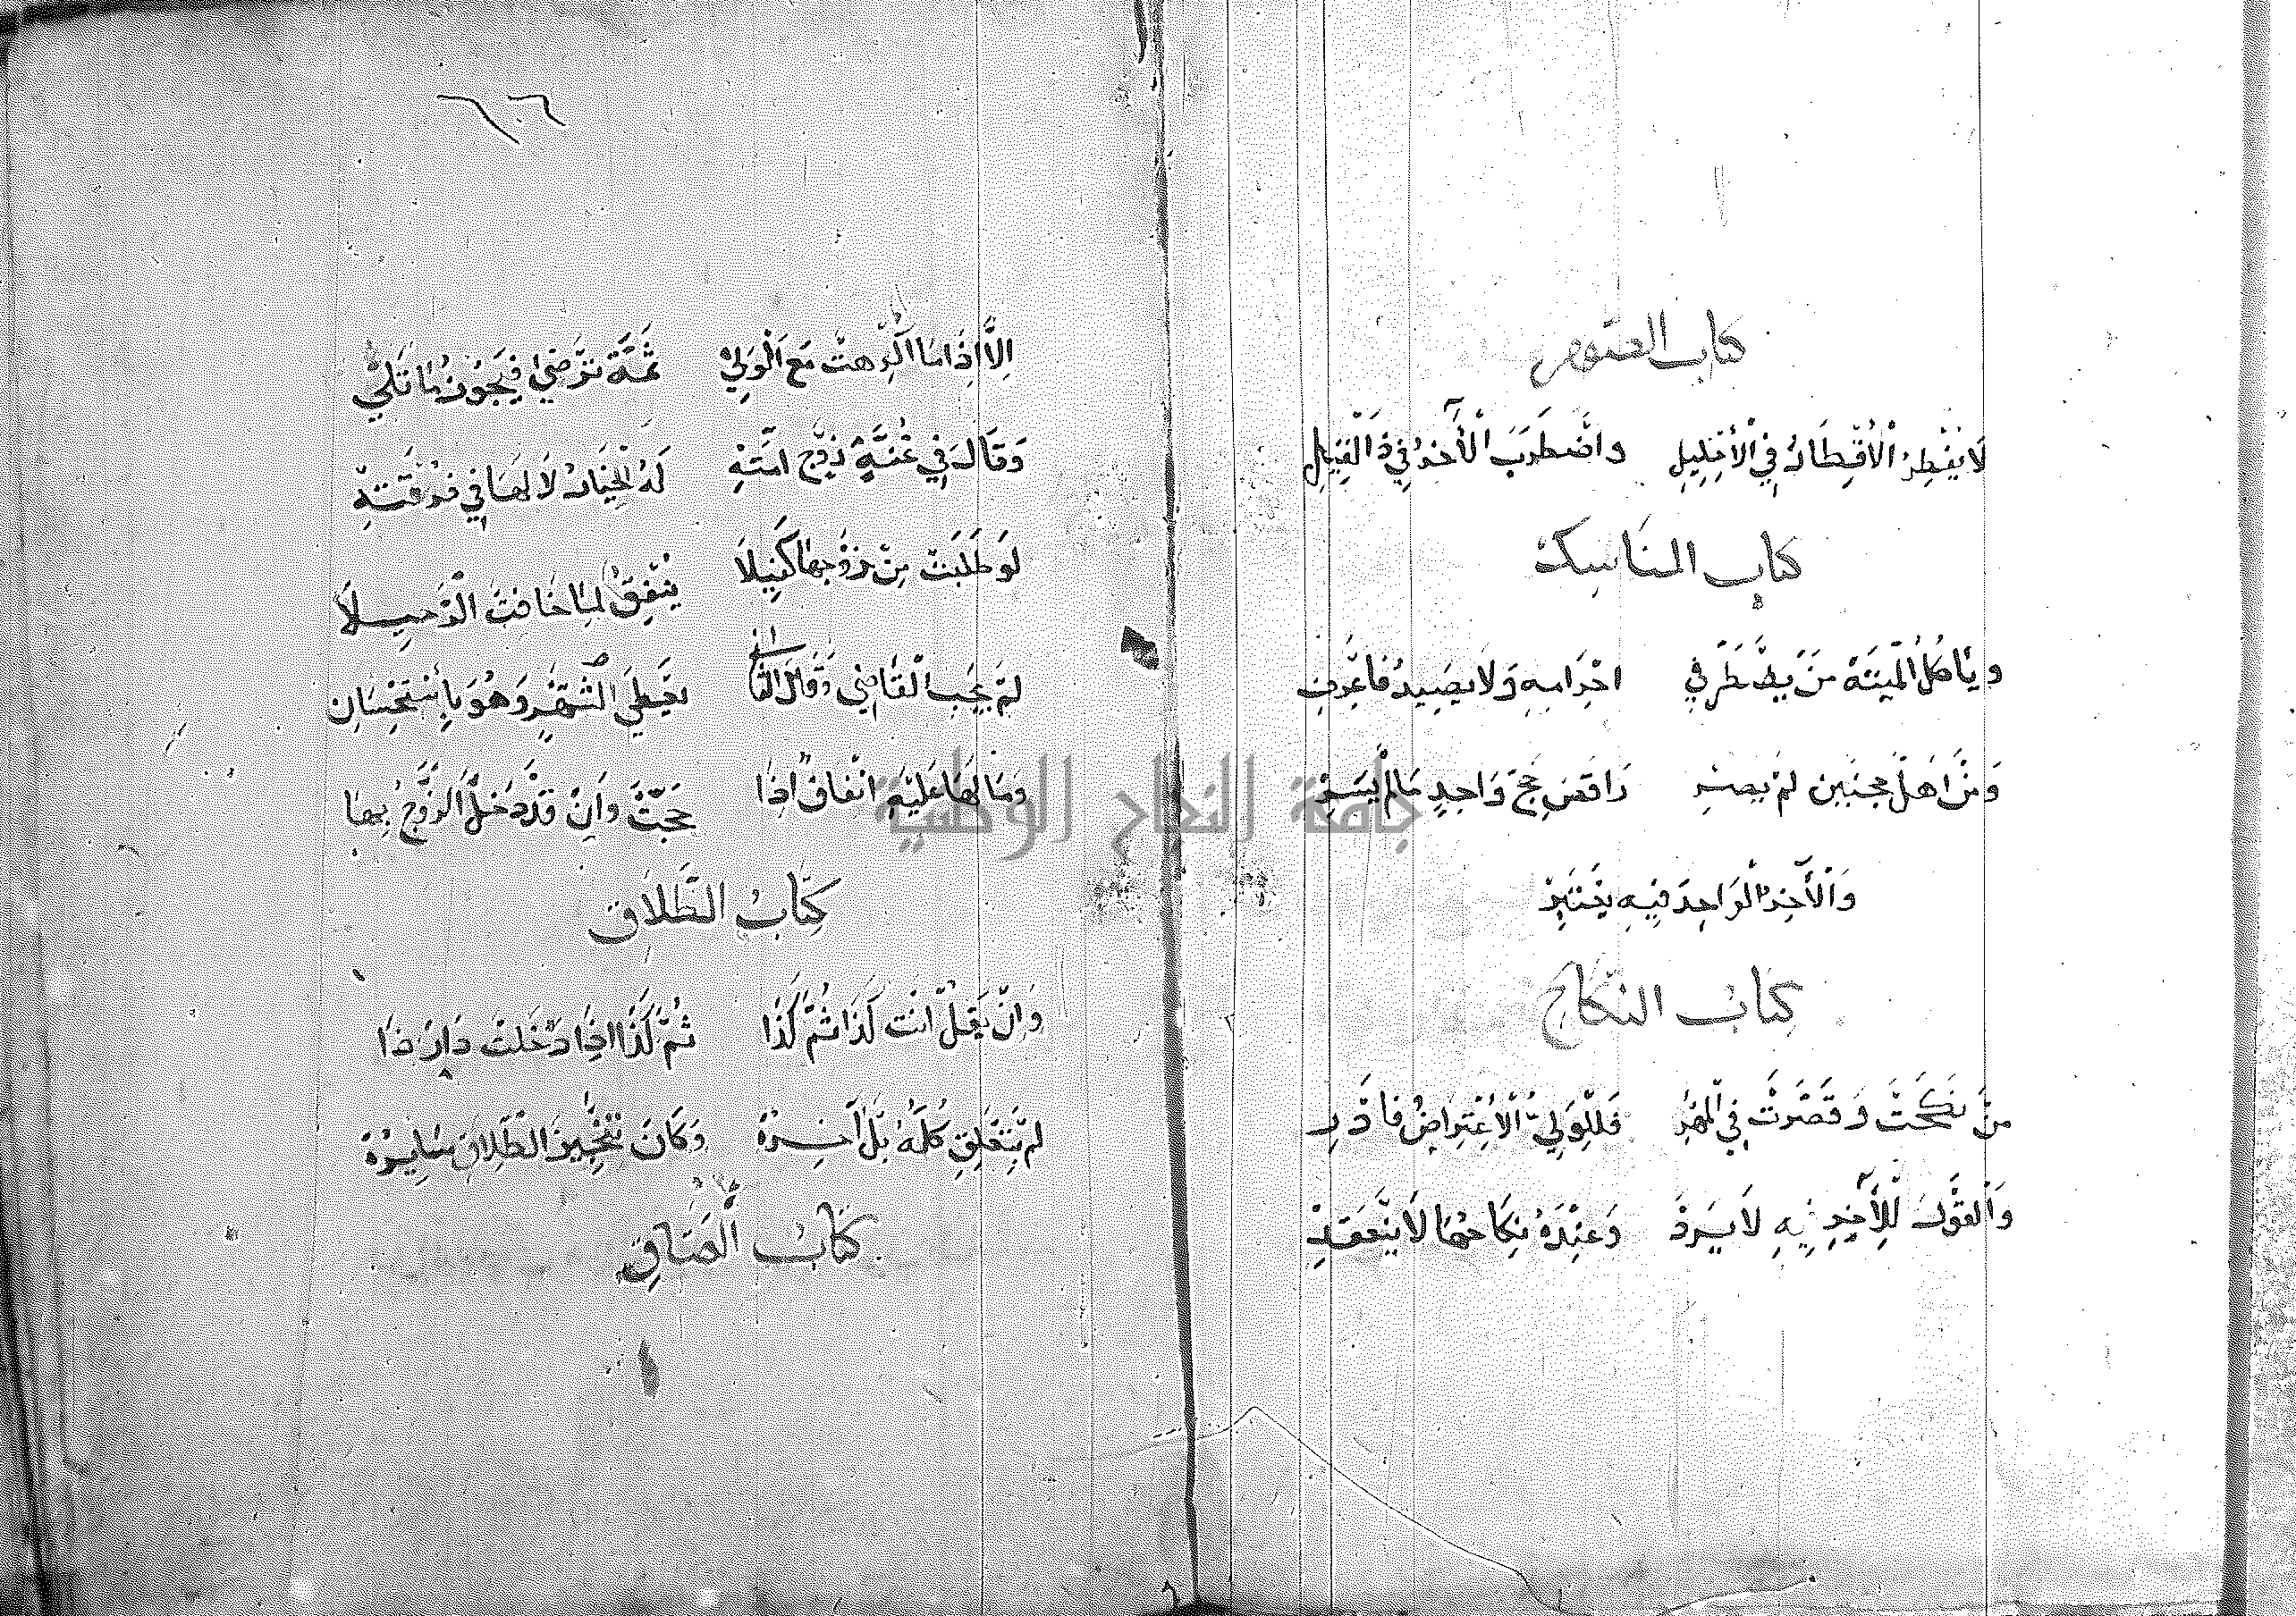 كتاب الصوم
لَا يُفْطِرُ الْاِقْطَارُ فِي الْاِحْلِيلِ واضْطَرَبَ الْآخَرُ فِي ذَا الْقِيلِ
كتاب المناسك
ويَاكُلُ الْمَيْتَةَ مَنْ يَضْطَرُّ فِي اِحْرَامِهِ وَلَا يَصِيدُ فَاعْرِفِ
وَمَنْ اَهَلَّ بحجتين لم يَصِرْ رَافِضَ حَجٍّ وَاحِدٍ مَا لَمْ يَسِرْ
وَالْآخَرُ الْوَاحِدَ فِيهِ يَعْتَبِرْ
كتاب النكاح
مَنْ نَكَحَتْ وَقَصَّرَتْ فِي الْمَهْرِ فَلِلْوَلِيِّ الْاِعْتِرَاضُ فَادْرِ
وَالْقَوْلُ لِلْآخَرِ فِيهِ لَا يَرِدْ وَعِنْدَهُ نِكَاحُهَا لَا يَنْعَقِدْ
١٠٦
اِلَّا اِذَا مَا اكْرِهت مَعَ الْوَلِيْ ثَمَّةَ تَرْضَى فَيَجُوزُ مَا تَلِيْ
وَقَالَ فِي عُنَّةِ زَوْجِ اَمَتِهْ لَهُ الْخِيَارُ لَا لَهَا فِي فُرْقَتِهْ
لَو طَلَبَتْ مِنْ زَوْجِهَا كَفِيلَا يُنْفِقُ لَمَّا خَافَتِ الرَّحِيلَا
لَمْ يُجِبِ الْقَاضِي وَقَالَ الثَّانِي يُعْطَى لِشَهْرٍ وَهُوَ بِاسْتِحْسَانِ
وَمَا لَهَا عَلَيْهِ اِنْفَاقٌ اِذَا حَجَّتْ وَاِنْ قَدْ دَخَلَ الزَّوْجُ بِهَا
كِتَابُ الطَّلَاقِ
وَاِنْ يَقُلْ اَنْتِ كَذَا ثُمَّ كَذَا ثُمَّ كَذَا اِذَا دَخَلْتِ دَارَ ذَا
لَمْ يَتَعَلَّقْ كُلُّهُ بَلْ آخِرُهْ وَكَانَ تَنْجِيزَ الطَّلَاقِ سَايِرُهْ
كِتَابُ الْعَتَاقِ
جامعة النجاح الوطنية